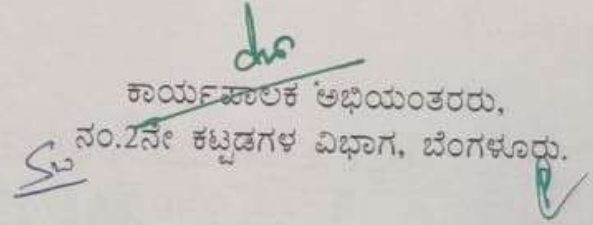 ಕಾರ್ಯಪಾಲಕ ಅಭಿಯಂತರರು,
ನಂ.2ನೇ ಕಟ್ಟಡಗಳ ವಿಭಾಗ, ಬೆಂಗಳೂರು.